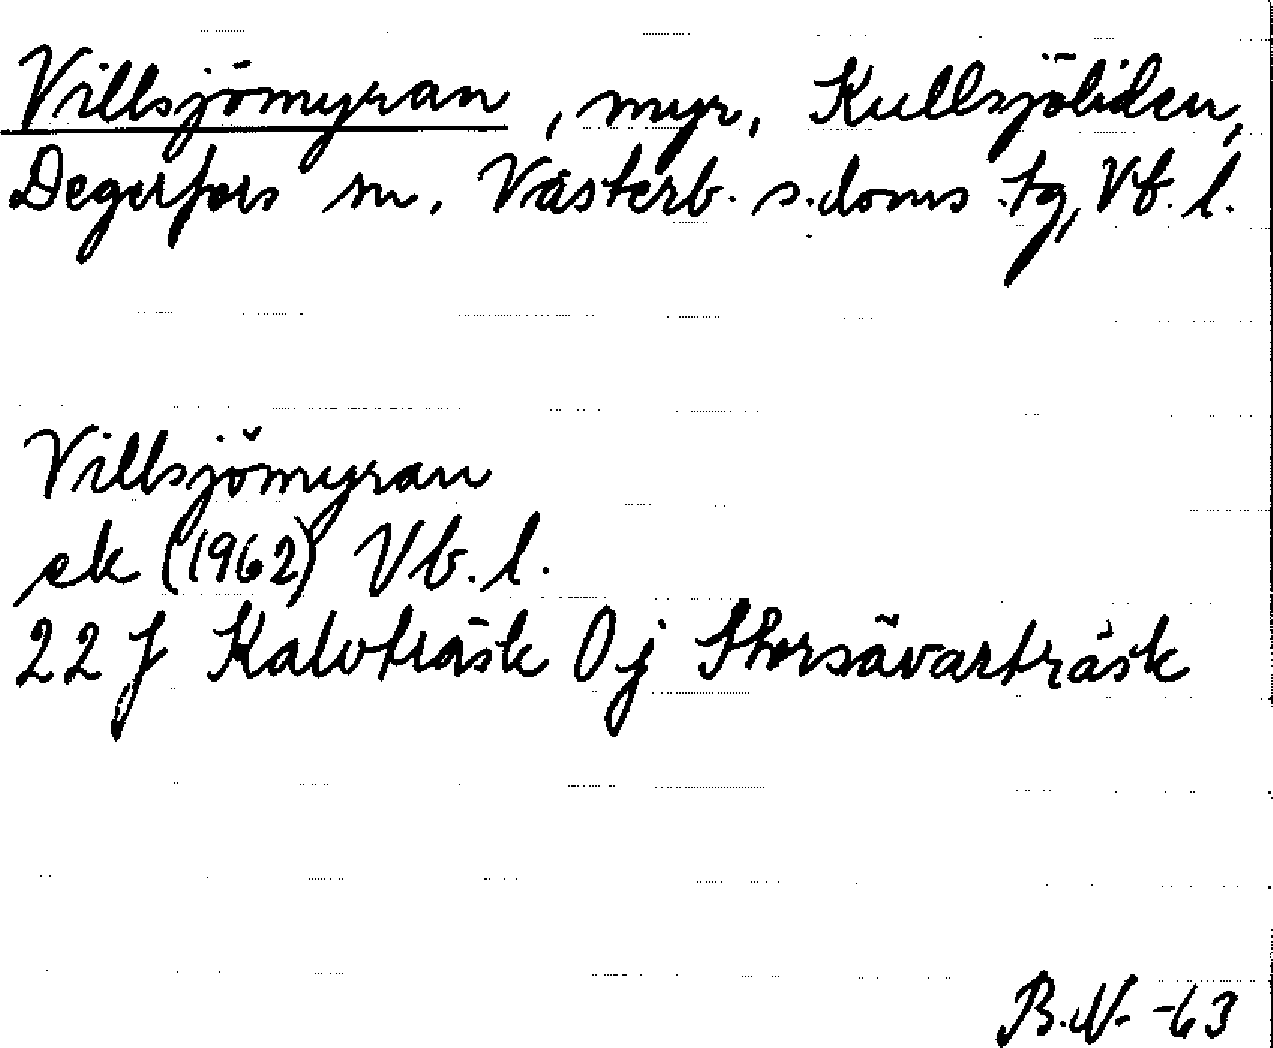 Villsjömyran, myr, Kullsjöliden,
Degerfors sn, Västerb. s.doms tg, Vb. l.
Villsjömyran
ek (1962) Vb. l.
22 J Kalvträsk 0 j Storsävarträsk
B.N. -63